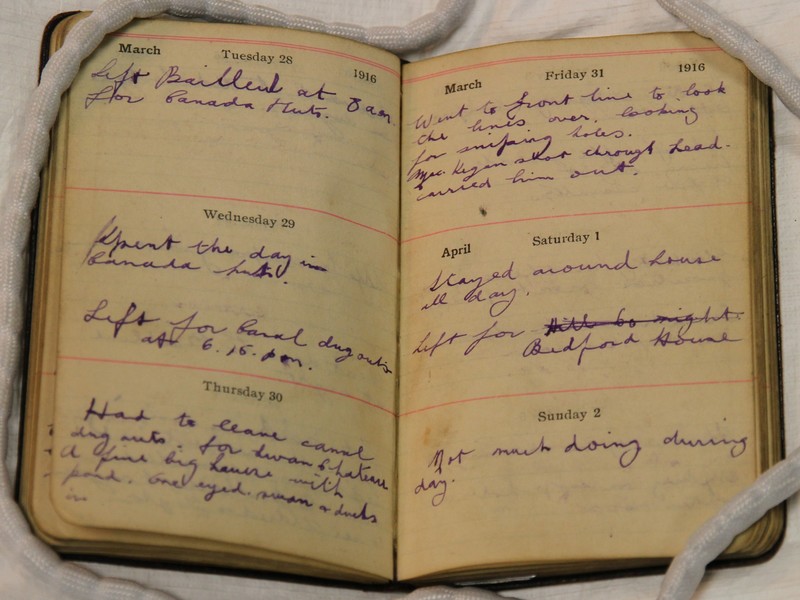 March Tuesday 28 1916
Left Bailleul at 8 am.
for Canada Huts.
Wednesday 29
Spent the day in
Canada huts.
Left for Canal dug outs
at 6.15. pm.
Thursday 30
Had to leave canal
dug outs. for Swan Chateau
A fine big house with
pond. One eyed. swan & ducks
in
March Friday 31 1916
Went to front line to look
the lines over. looking
for snipeing holes.
shot through head.
carried him out.
April Saturday 1
Stayed around house
all day.
Left for Hill 60 night.
Bedford House
Sunday 2
Not much doing during
day.